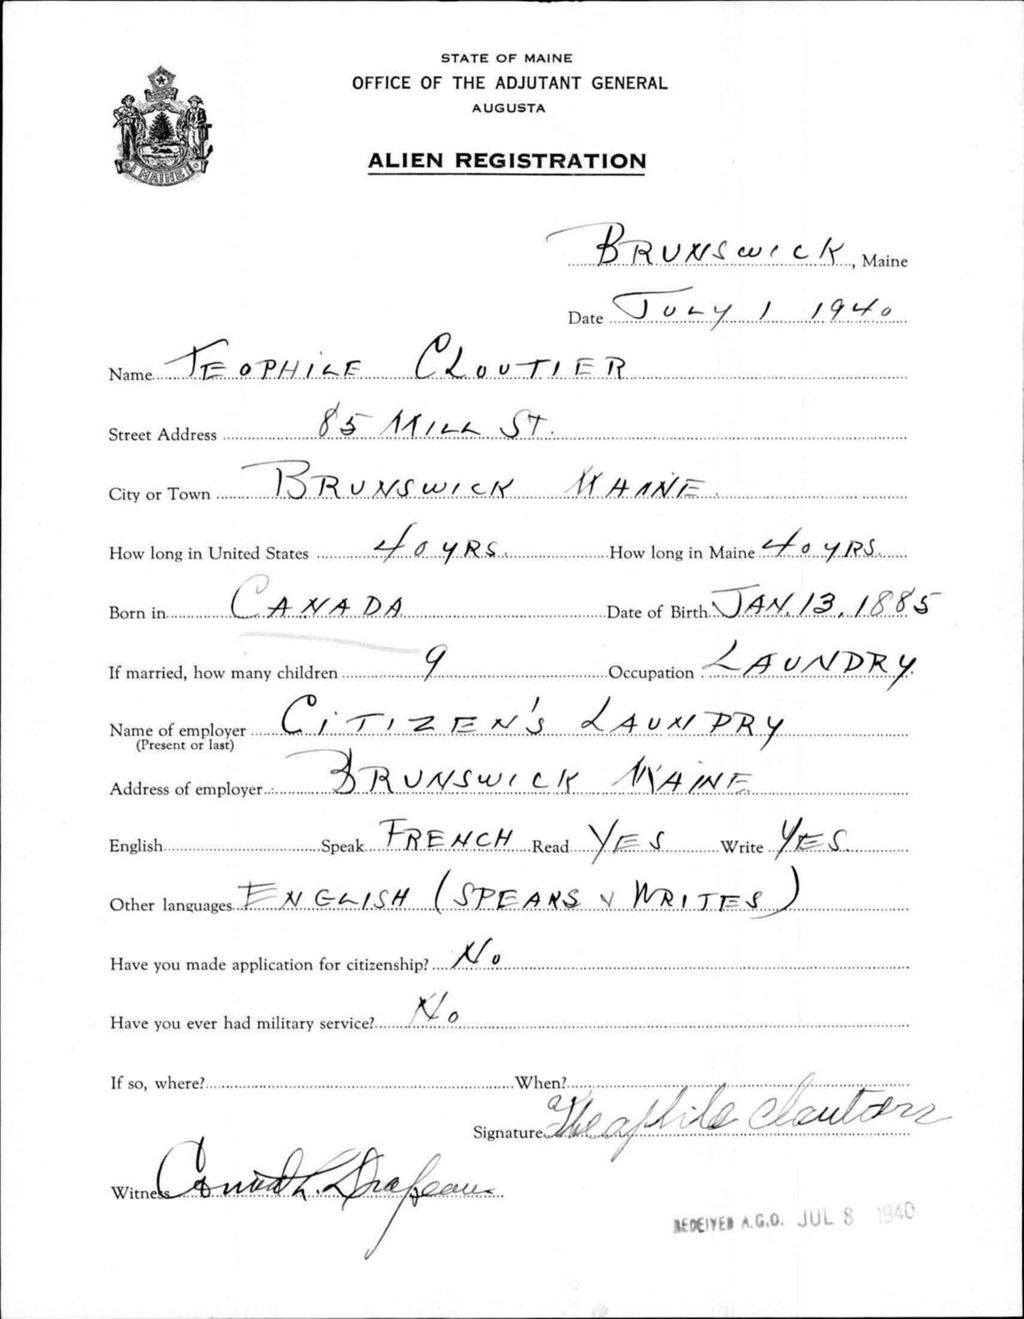 STATE OF MAINE
OFFICE OF THE ADJUTANT GENERAL
AUGUSTA
ALIEN REGISTRATION
MAINE
BRUNSWICK, Maine
Date JULY 1 1940
Name TEOPHILE CLOUTIER
Street Address 85 MILL ST.
City or Town BRUNSWICK MAINE
How long in United States 40 YRS. How long in Maine 40 YRS.
Born in CANADA Date of Birth JAN. 13, 1885
If married, how many children 9 Occupation LAUNDRY
Name of employer CITIZEN'S LAUNDRY
(Present or last)
Address of employer BRUNSWICK MAINE
English Speak FRENCH Read YES Write YES.
Other languages ENGLISH (SPEAKS & WRITES)
Have you made application for citizenship? No
Have you ever had military service? No
If so, where? When?
Signature Theaphile Cloutier
Witness L. Drapeau
RECEIVED A.G.O. JUL 8 1940